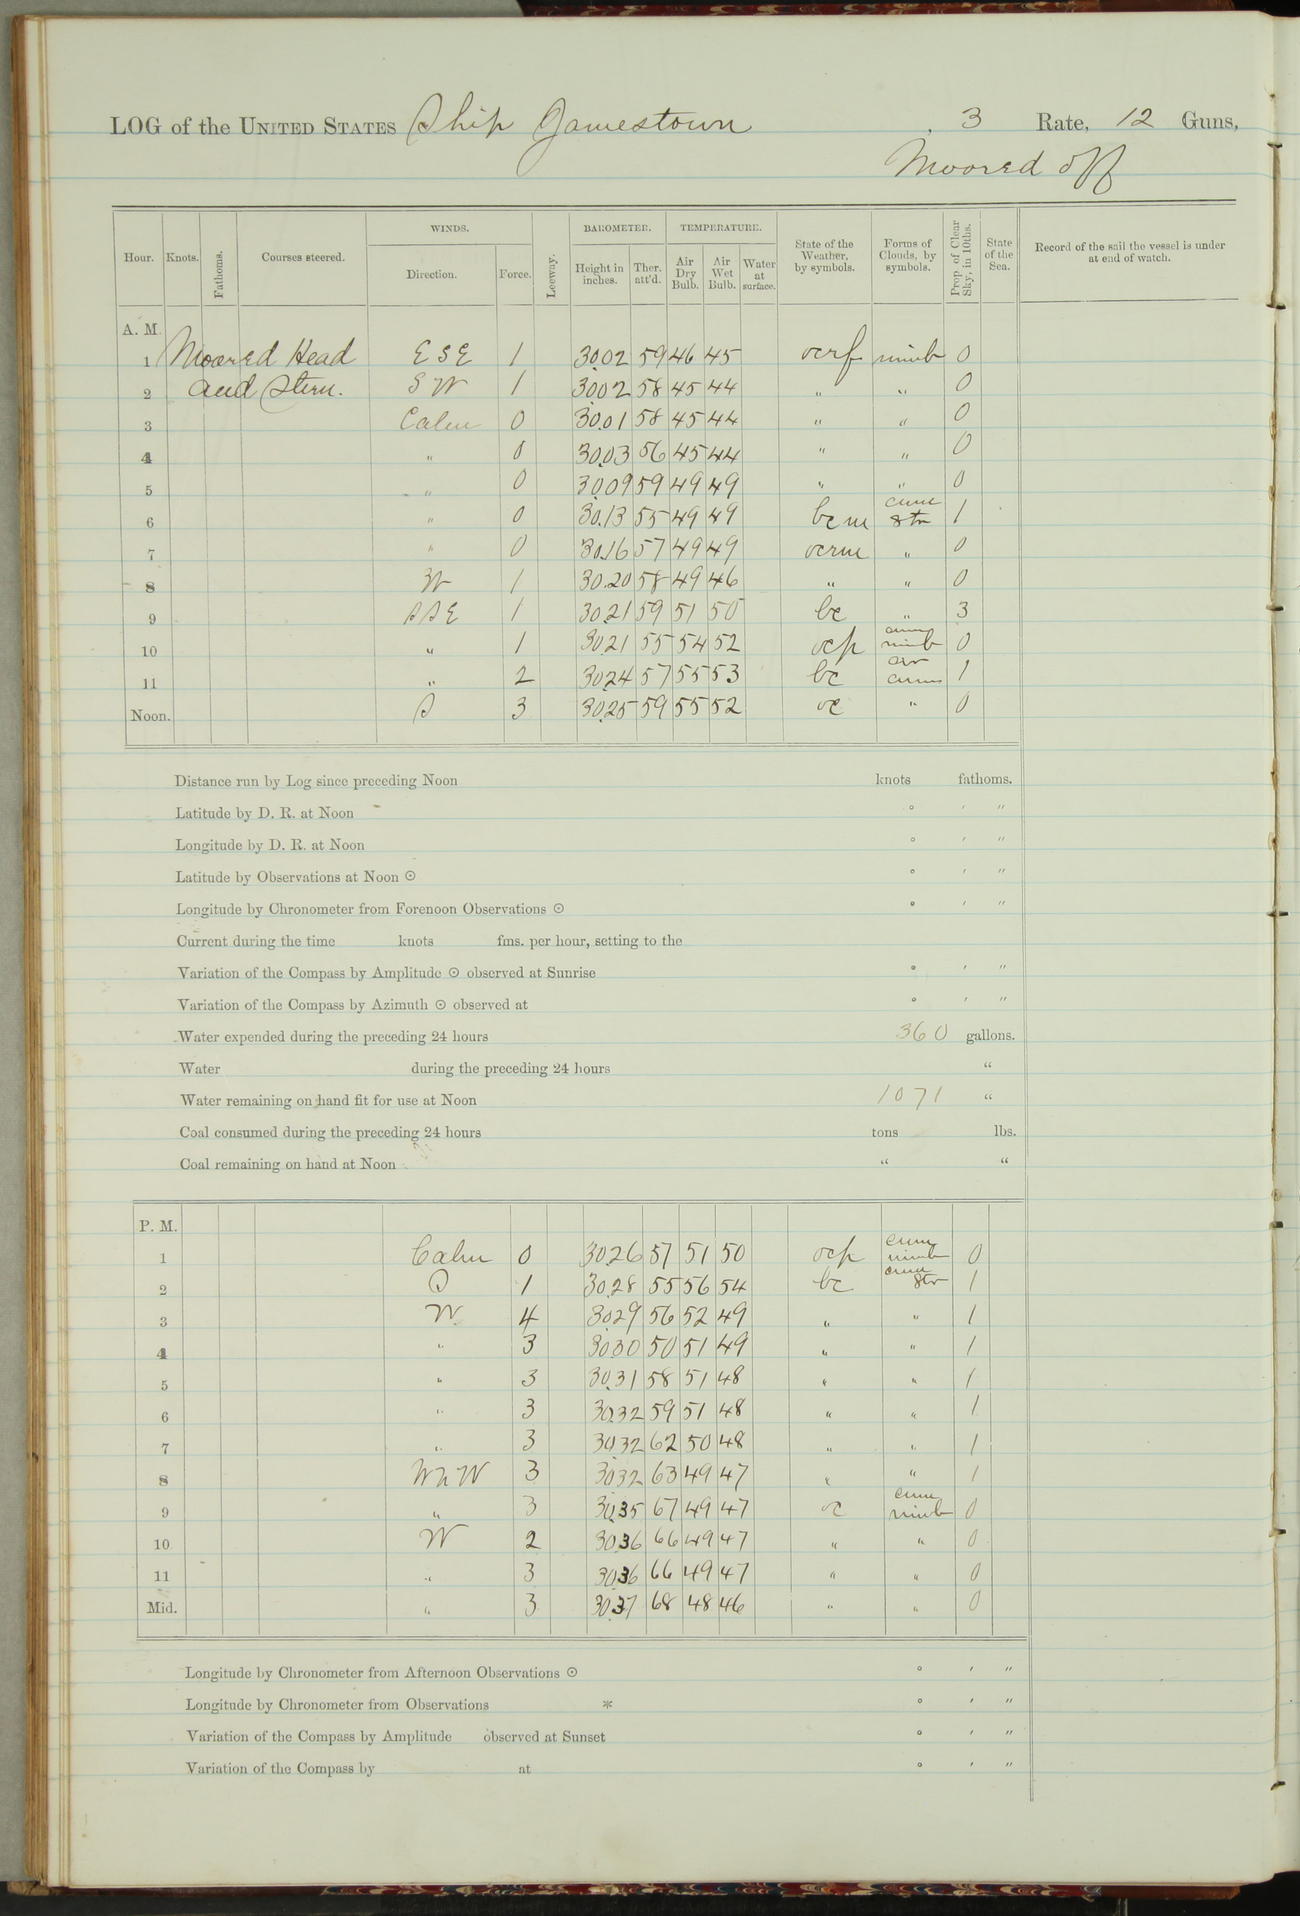 LOG of the UNITED STATES Ship Jamestown, 3 Rate, 12 Guns,
Moored off
Hour. Knots. Fathoms. Courses steered. WINDS. Direction. Force. Leeway. BAROMETER. Height in inches. Ther. att'd. TEMPERATURE. Air Dry Bulb. Air Wet Bulb. Water at surface. State of the Weather, by symbols. Forms of Clouds, by symbols. Prop. of Clear Sky, in 10ths. State of the Sea. Record of the sail the vessel is under at end of watch.
A. M.
1 Moored Head ESE 1 30.02 59 46 45 ocrf nimb 0
2 and Stern. SW 1 30.02 58 45 44 " " 0
3 Calm 0 30.01 58 45 44 " " 0
4 " 0 30.03 56 45 44 " " 0
5 " 0 30.09 59 49 49 " " 0
6 " 0 30.13 55 49 49 bcm cum str 1
7 " 0 30.16 57 49 49 ocrm " 0
8 W 1 30.20 58 49 46 " " 0
9 SSE 1 30.21 59 51 50 bc " 3
10 " 1 30.21 55 54 52 ocp cum nimb 0
11 " 2 30.24 57 55 53 bc cir cum 1
Noon. S 3 30.25 59 55 52 oc " 0
Distance run by Log since preceding Noon knots fathoms.
Latitude by D. R. at Noon ° ′ ″
Longitude by D. R. at Noon ° ′ ″
Latitude by Observations at Noon ☉ ° ′ ″
Longitude by Chronometer from Forenoon Observations ☉ ° ′ ″
Current during the time knots fms. per hour, setting to the
Variation of the Compass by Amplitude ☉ observed at Sunrise ° ′ ″
Variation of the Compass by Azimuth ☉ observed at ° ′ ″
Water expended during the preceding 24 hours 360 gallons.
Water during the preceding 24 hours "
Water remaining on hand fit for use at Noon 1071 "
Coal consumed during the preceding 24 hours tons lbs.
Coal remaining on hand at Noon " "
P. M.
1 Calm 0 30.26 57 51 50 ocp cum nimb 0
2 S 1 30.28 55 56 54 bc cum str 1
3 W 4 30.29 56 52 49 " " 1
4 " 3 30.30 50 51 49 " " 1
5 " 3 30.31 58 51 48 " " 1
6 " 3 30.32 59 51 48 " " 1
7 " 3 30.32 62 50 48 " " 1
8 WNW 3 30.32 63 49 47 " " 1
9 " 3 30.35 67 49 47 oc cum nimb 0
10 W 2 30.36 66 49 47 " " 0
11 " 3 30.36 66 49 47 " " 0
Mid. " 3 30.37 68 48 46 " " 0
Longitude by Chronometer from Afternoon Observations ☉ ° ′ ″
Longitude by Chronometer from Observations * ° ′ ″
Variation of the Compass by Amplitude observed at Sunset ° ′ ″
Variation of the Compass by at ° ′ ″